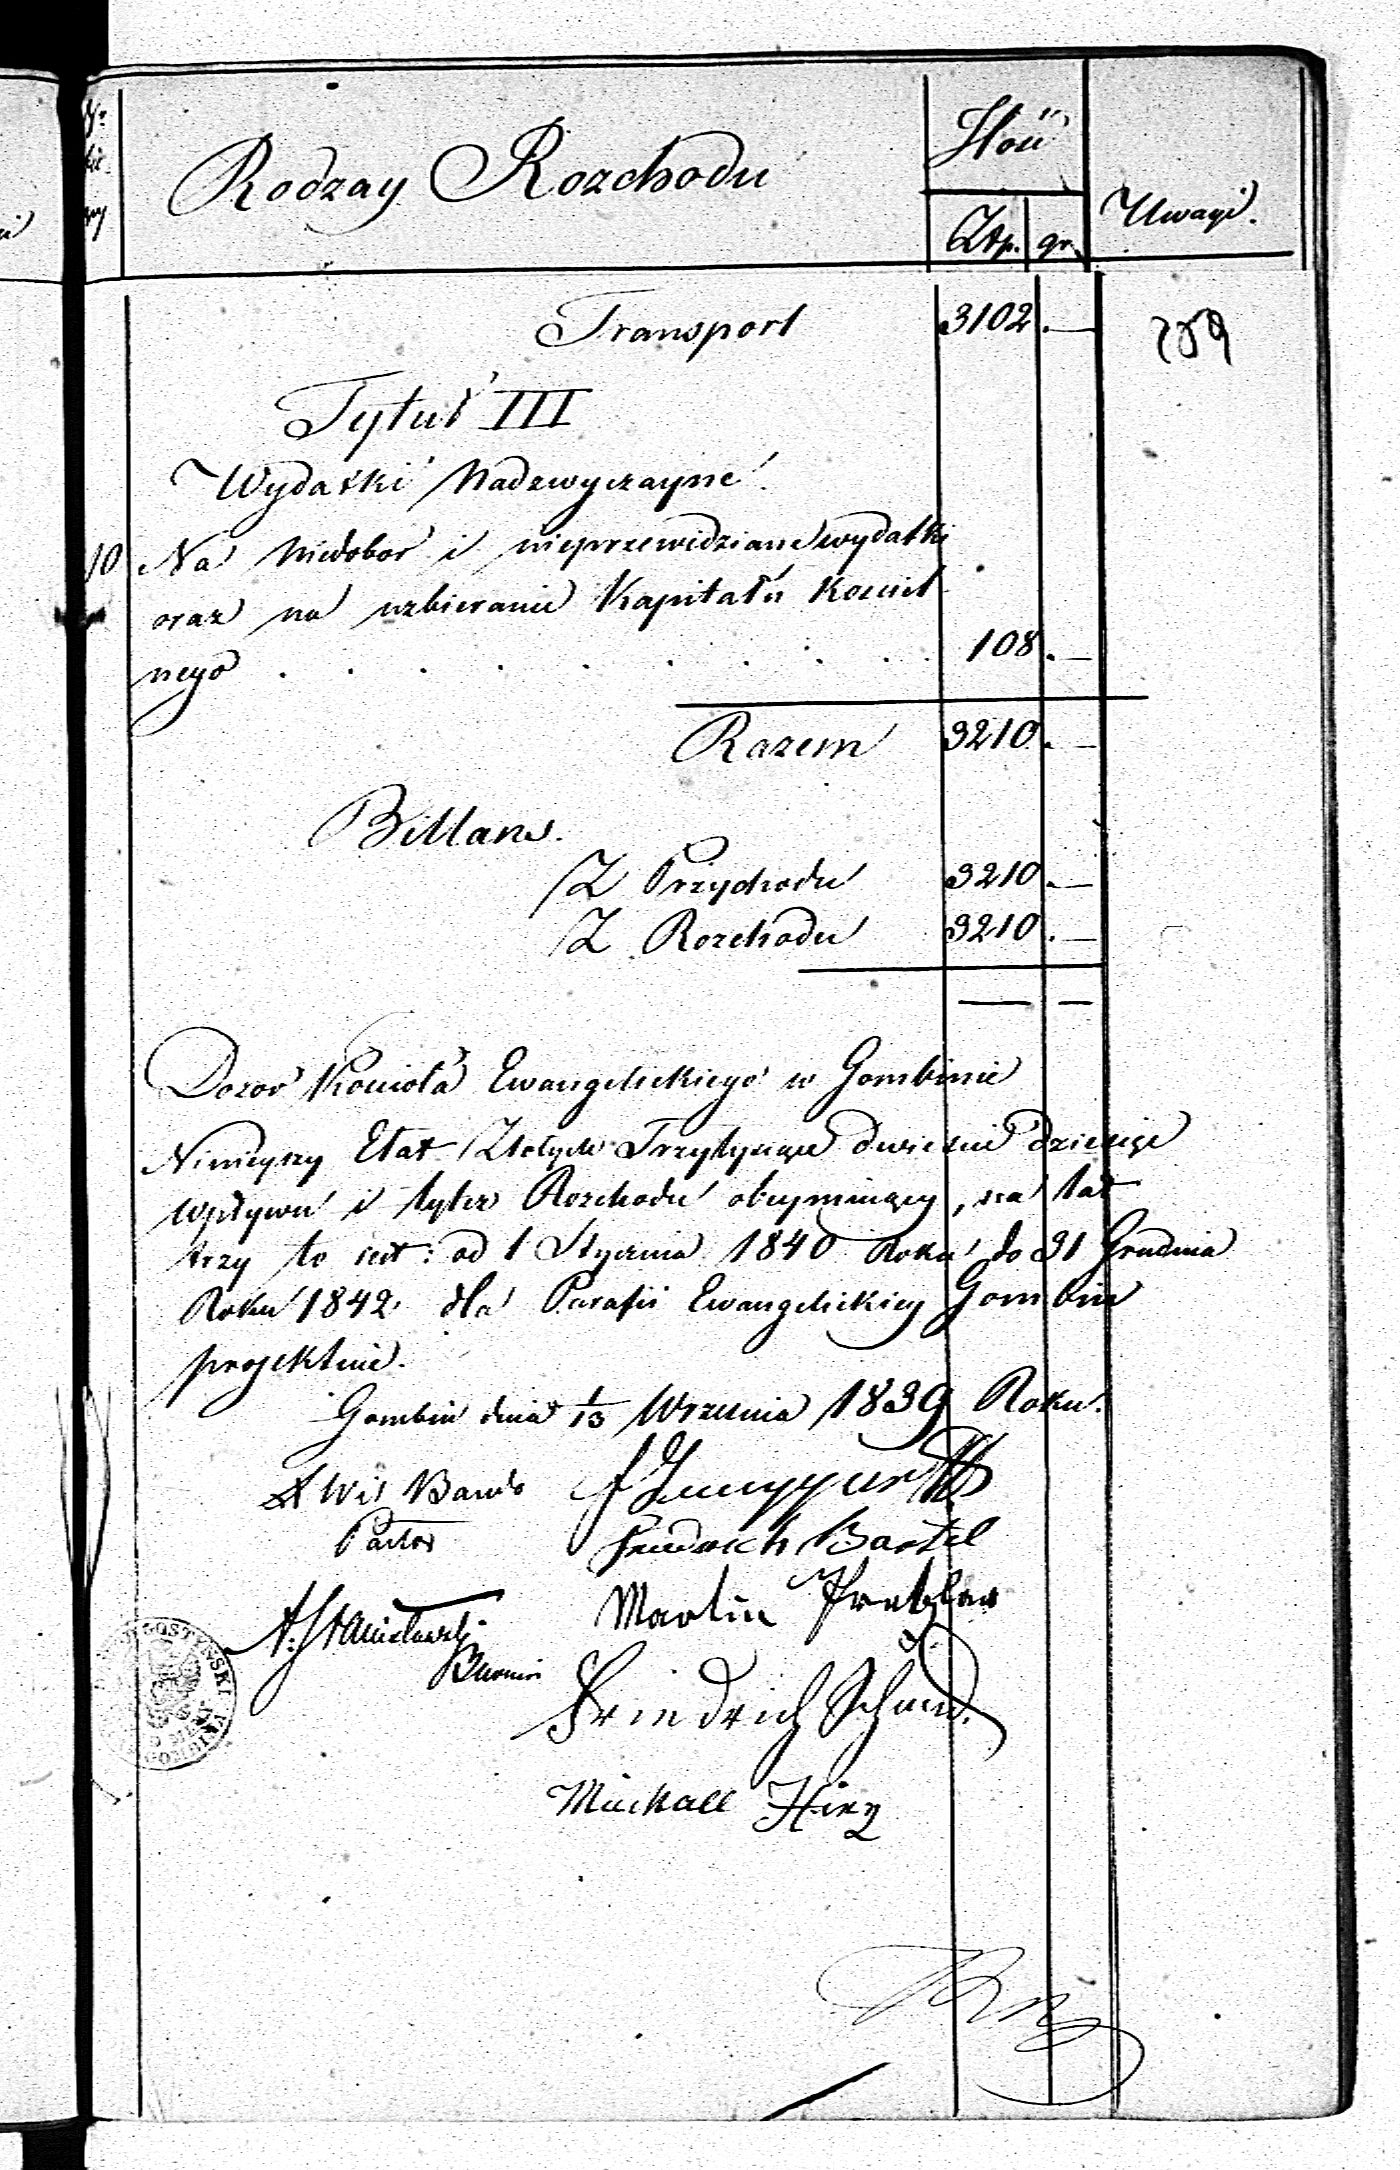 Rodzay Rozchodu
Złp. gr.
Uwagi.
Transport 3102 . —
259
Tytuł III
Wydatki Nadzwyczayne
10 Na Niedobor i nieprzewidziane wydatki
oraz na uzbieranie Kapitału Kościel
nego . . . . . . . . . 108 . —
Razem 3210 . —
Billans.
Z Przychodu 3210 . —
Z Rozchodu 3210 . —
— —
Dozor Kościoła Ewangelickiego w Gombinie
Ninieyszy Etat Złotych Trzytysiące dwieście dziesięć
wpływu i tyleż Rozchodu obeymuiący, na lat
trzy to iest: od 1 Stycznia 1840 Roku do 31 Grudnia
Roku 1842 dla Parafii Ewangelickiey Gombin
projektuie.
Gombin dnia 1/13 Września 1839 Roku.
Pastor
Friedrich Bartel
Martin
A. Stanisławski
Burmis
Friedrich Schmid.
Mickall